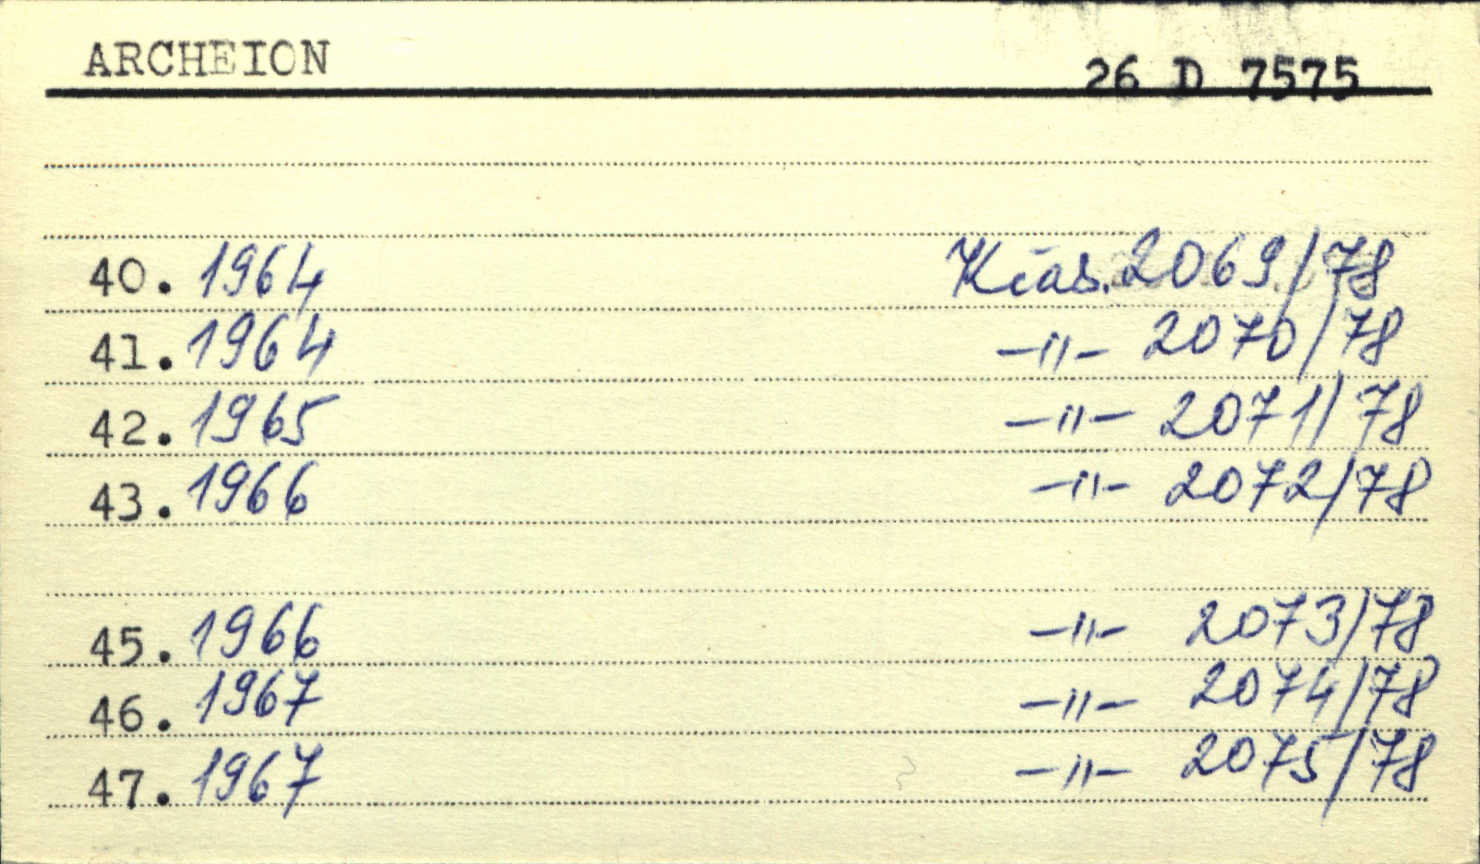 ARCHEION 26 D 7575
40. 1964 Kčas. 2069/78
41. 1964 -"- 2070/78
42. 1965 -"- 2071/78
43. 1966 -"- 2072/78
45. 1966 -"- 2073/78
46. 1967 -"- 2074/78
47. 1967 -"- 2075/78